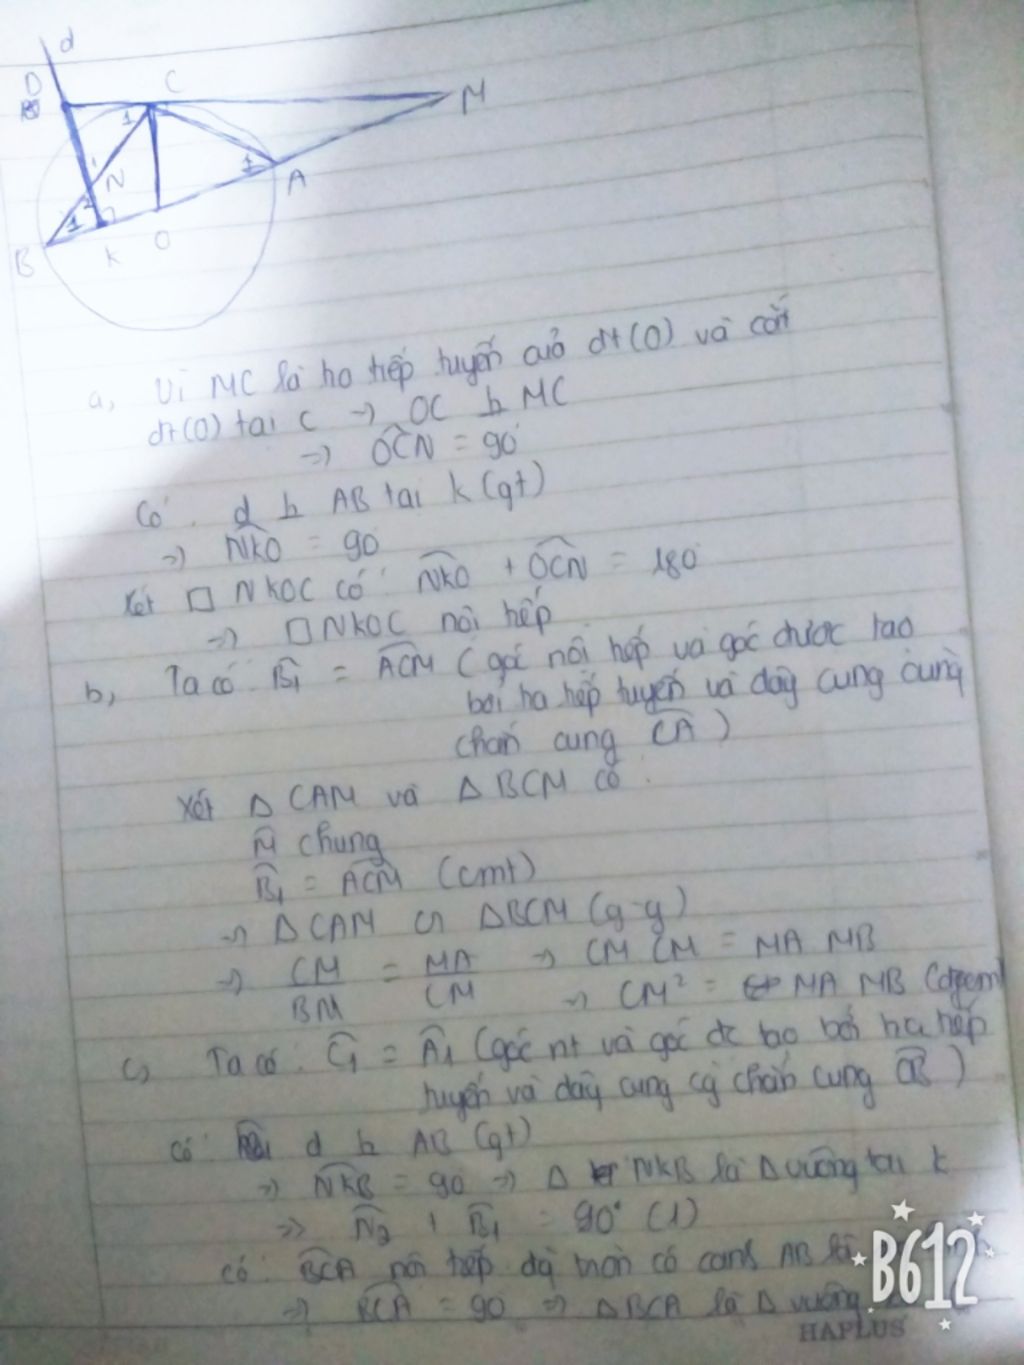 d
D
C
M
1
1
A
N
1
2
1
B
K
O
a, Vì MC là ha tiếp tuyến của đt(O) và cắt
đt(O) tại C => OC ⊥ MC
=> OCN = 90°
Có: d ⊥ AB tại k (gt)
=> NKO = 90
Xét □ NKOC có: NKO + OCN = 180°
=> □NKOC nội tiếp
b, Ta có: B1 = ACM (góc nội tiếp và góc được tạo
bởi ha tiếp tuyến và dây cung cùng
chắn cung CA)
Xét Δ CAM và Δ BCM có:
M chung
B1 = ACM (cmt)
=> Δ CAM ∽ ΔBCM (g-g)
=> CM/BM = MA/CM => CM CM = MA MB
=> CM² = MA MB (đpcm)
c, Ta có: C1 = A1 (góc nt và góc đc tạo bởi ha tiếp
tuyến và dây cung cg chắn cung CB)
Có: d ⊥ AB (gt)
=> NKB = 90 => Δ NKB là Δ vuông tại K
=> N2 + B1 = 90° (1)
Có: BCA nội tiếp đg tròn có cạnh AB là
=> BCA = 90 => ΔBCA là Δ vuông
B612
HAPLUS